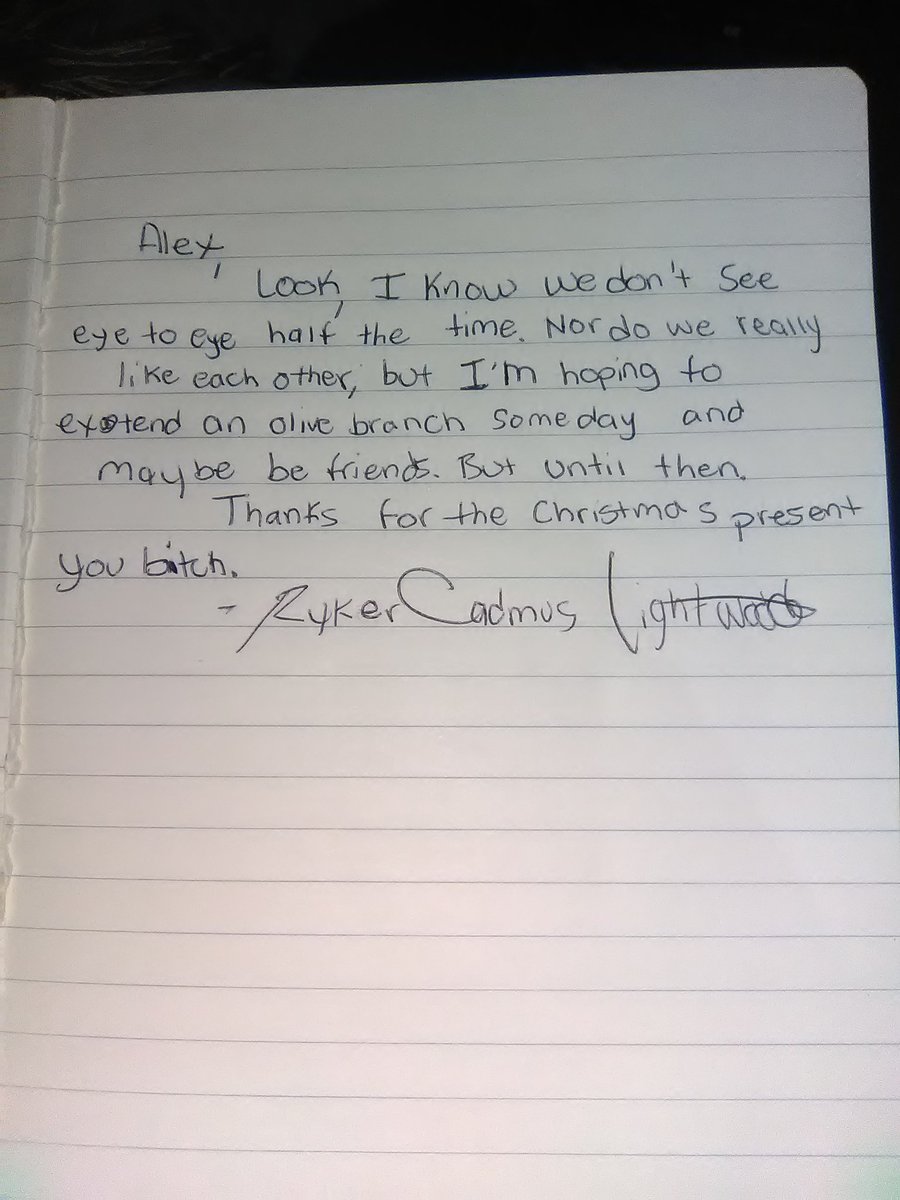 Alex,
Look, I know we don't see
eye to eye half the time. Nor do we really
like each other, but I'm hoping to
extend an olive branch someday and
maybe be friends. But until then.
Thanks for the Christmas present
you bitch.
- Ryker Cadmus Lightwood